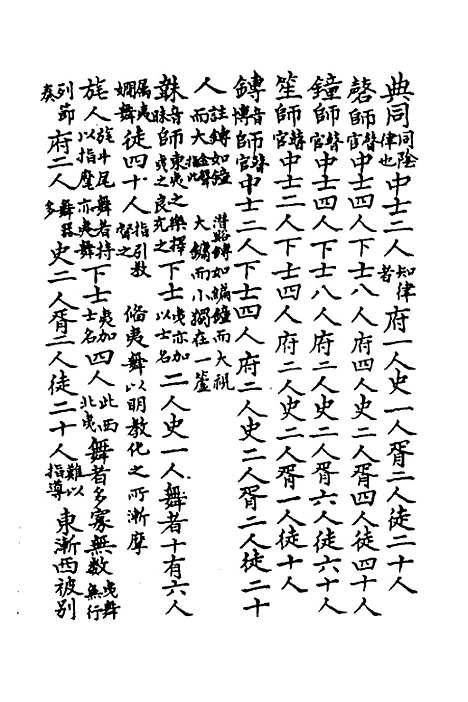 典同同陰律也中士二人知律者府一人史一人胥二人徒二十人
磬師瞽官中士四人下士八人府四人史二人胥四人徒四十人
鐘師瞽官中士四人下士八人府二人史二人胥六人徒六十人
笙師瞽官中士二人下士四人府二人史二人胥一人徒十人
鏄音博師瞽官中士二人下士四人府二人史二人胥二人徒二十
人註鏄如鐘而大潛谿鏄如編鐘而大視大鏞而小獨在一簴
韎音昧師東夷之樂擇夷之良充之下士夷亦加以士名二人史一人舞者十有六人
属夷嫺舞徒四十人指引教督之脩夷舞以明教化之所漸摩
旄人旄牛尾舞者持以指麾亦夷舞下士夷加士名四人此西北夷舞者多寡無数夷舞無行
列節奏府二人舞器多史二人胥二人徒二十人難以指導東漸西被别